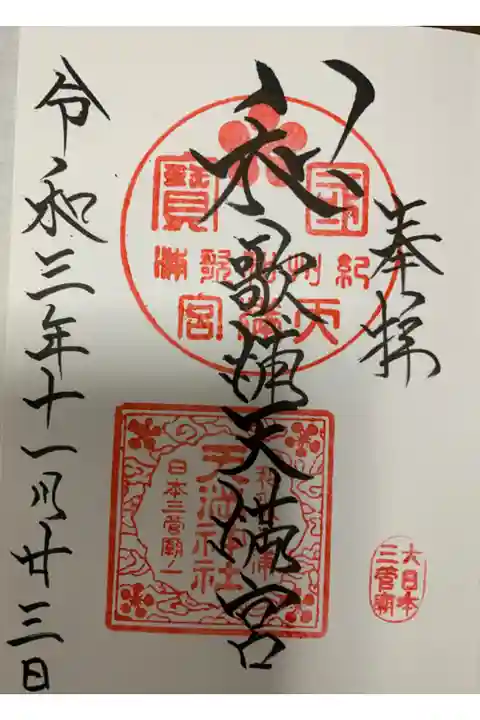 奉拝
和歌浦天満宮
令和三年十一月廿三日
國寶
紀州和歌浦
天満宮
和歌浦
天満神社
日本三菅廟ノ一
大日本
三菅廟